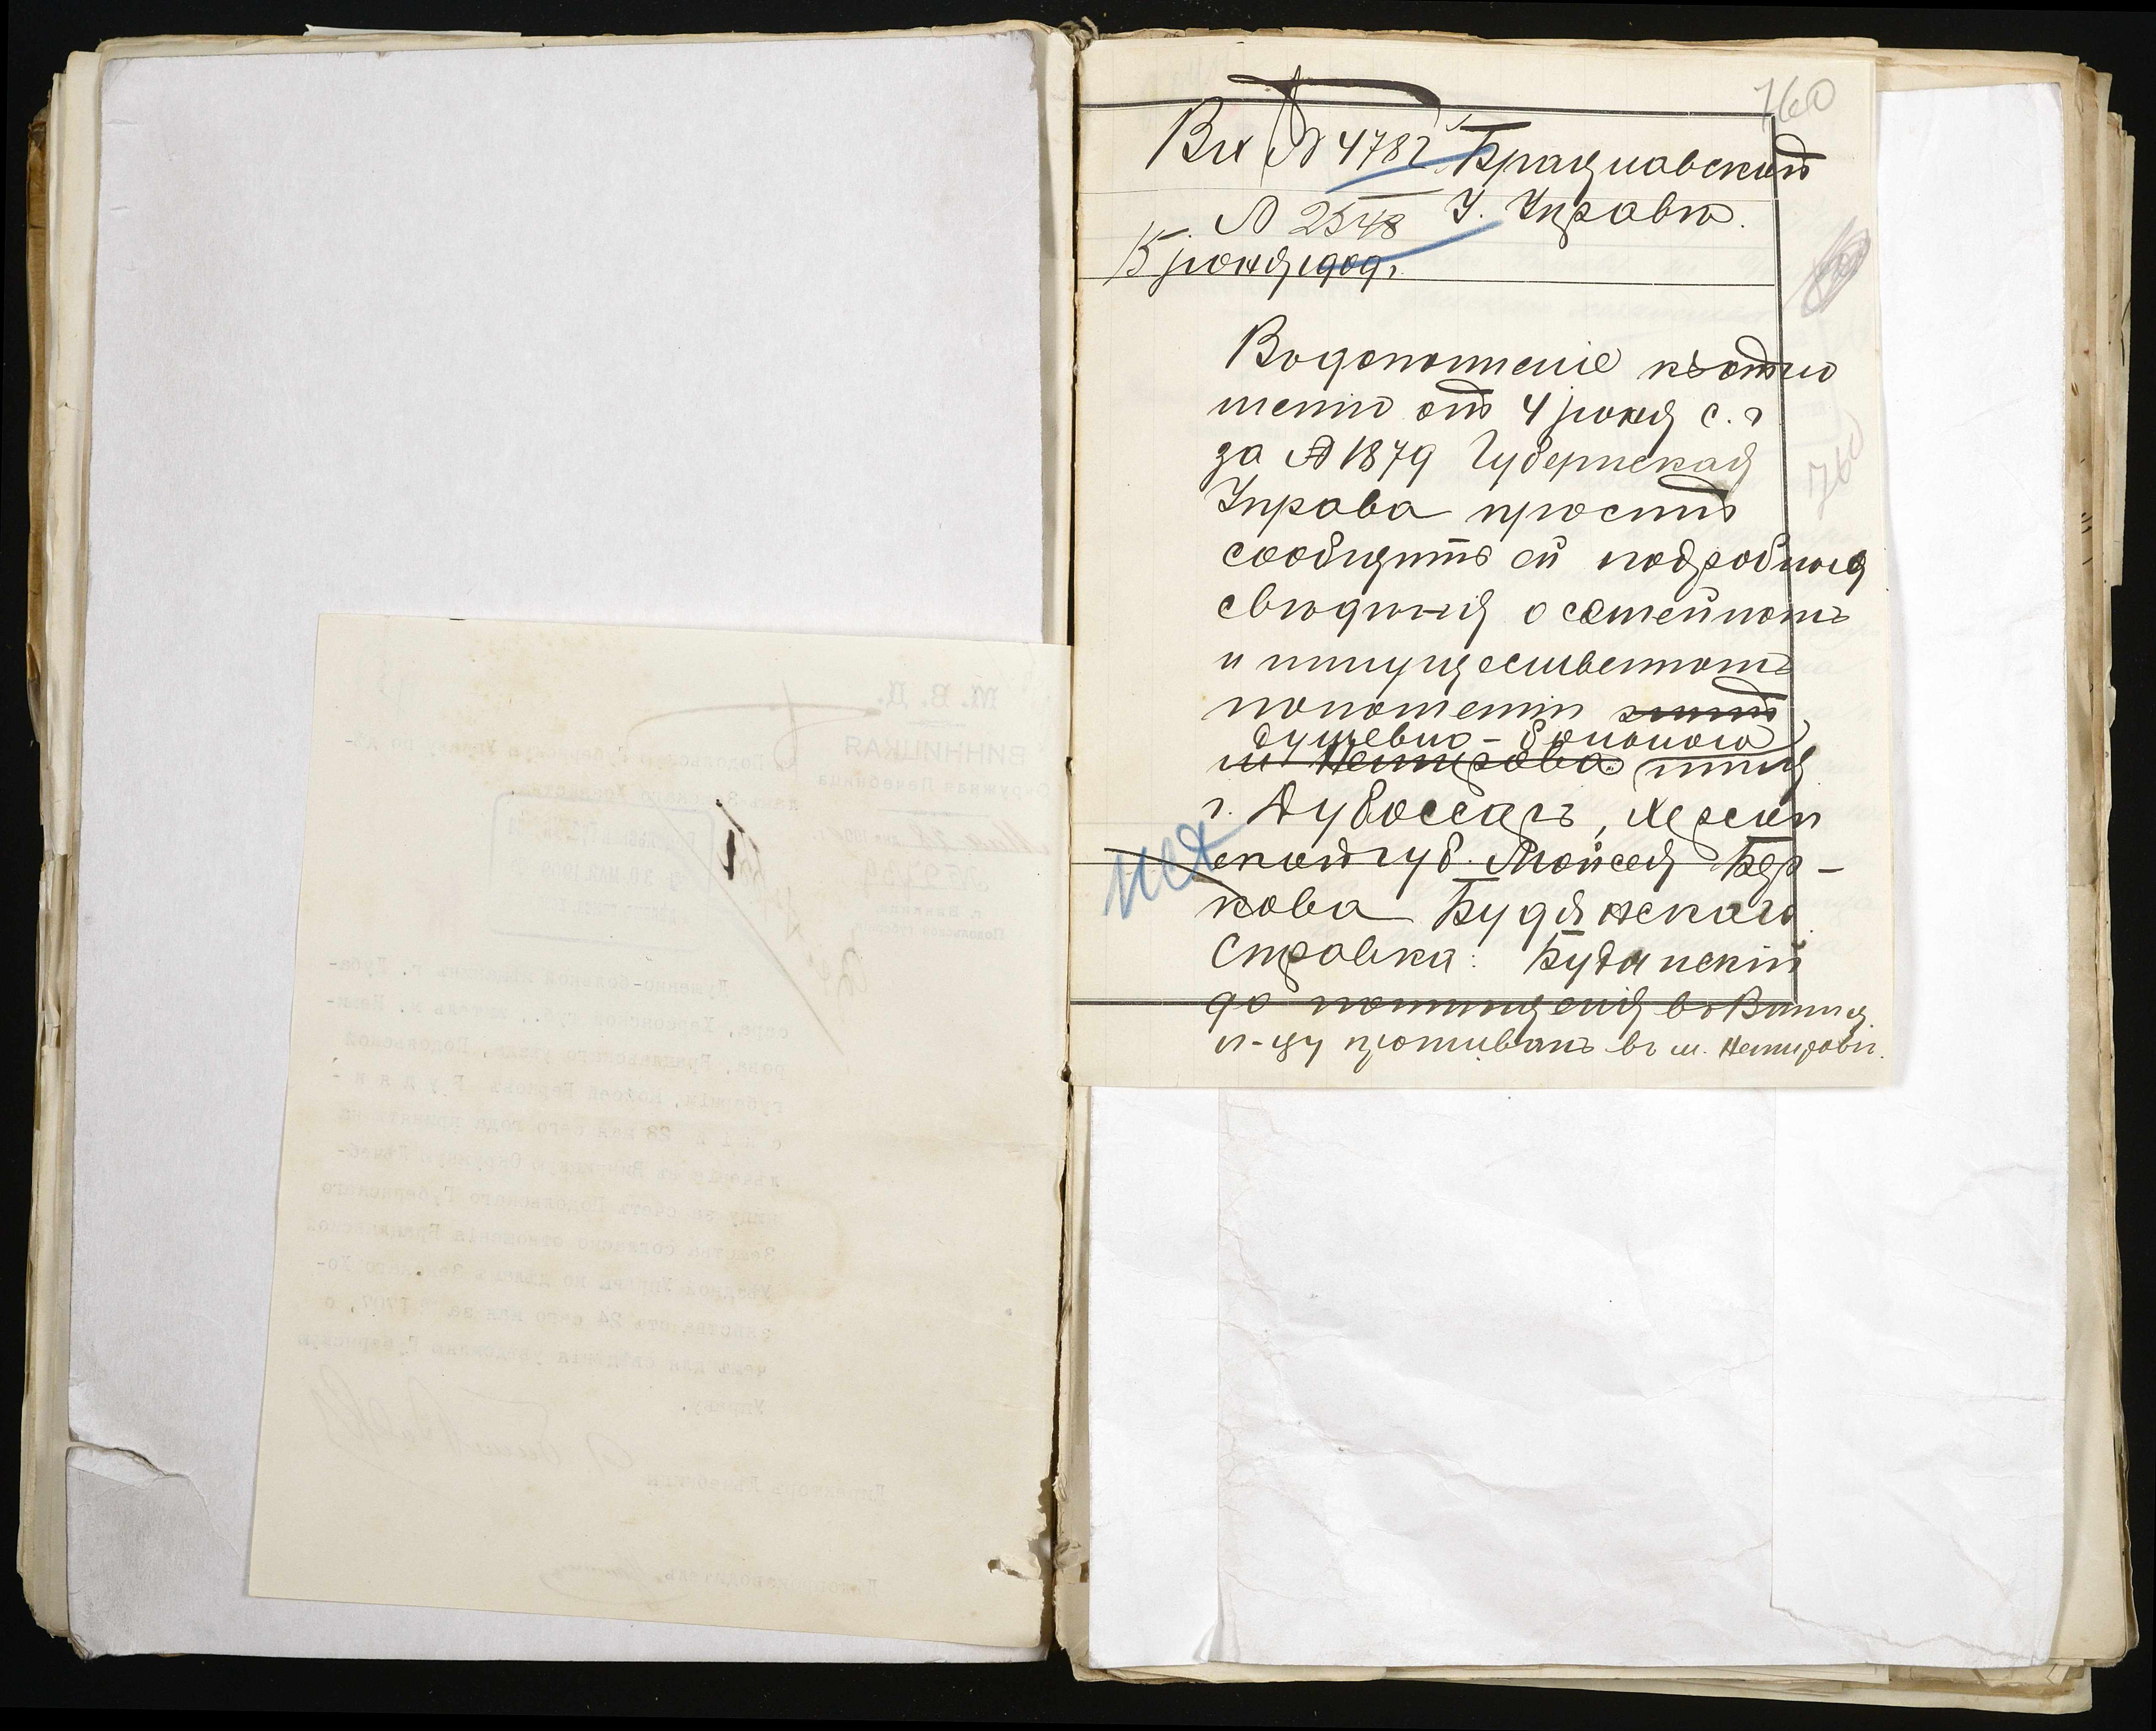 760
Вх № 4782 Брацлавской
№ 2548 У. Управѣ.
15 іюня 1909 г.
Въ дополненіе къ отно
шенію отъ 4 іюня с. г.
за № 1879 Губернская
Управа проситъ
сообщить ей подробныя
свѣдѣнія о семейномъ
и имущественномъ
положеніи
душевно-больного
м. Немирова
г. Дубоссаръ, Херсон
ской губ. Мойсея Бер-
кова Будянскаго.
Справка: Будянскій
до помѣщенія въ Винниц.
л-цу проживалъ въ м. Немировѣ.
исх
760
М. В. Д.
ВИННИЦКАЯ
Окружная Лечебница
Подольскую Губернскую Управу по дѣ-
ламъ Земскаго Хозяйства.
30 МАЯ 1909
г. Винница
Подольской губерніи
Душевно-больной мѣщанинъ г. Дубо-
саръ, Херсонской губ., житель м. Неми-
рова, Брацлавскаго уѣзда, Подольской
губерніи, Мойсей Берковъ Б у д я н -
с к і й 28 мая сего года принятъ на
лѣченіе въ Винницкую Окружную Лечеб-
ницу за счетъ Подольскаго Губернскаго
Земства согласно отношенія Брацлавской
Уѣздной Управы по дѣламъ Земскаго Хо-
зяйства отъ 24 сего мая за № 1707, о
чемъ для свѣдѣнія увѣдомляю Губернскую
Управу.
Директоръ Лечебницы
Дѣлопроизводитель